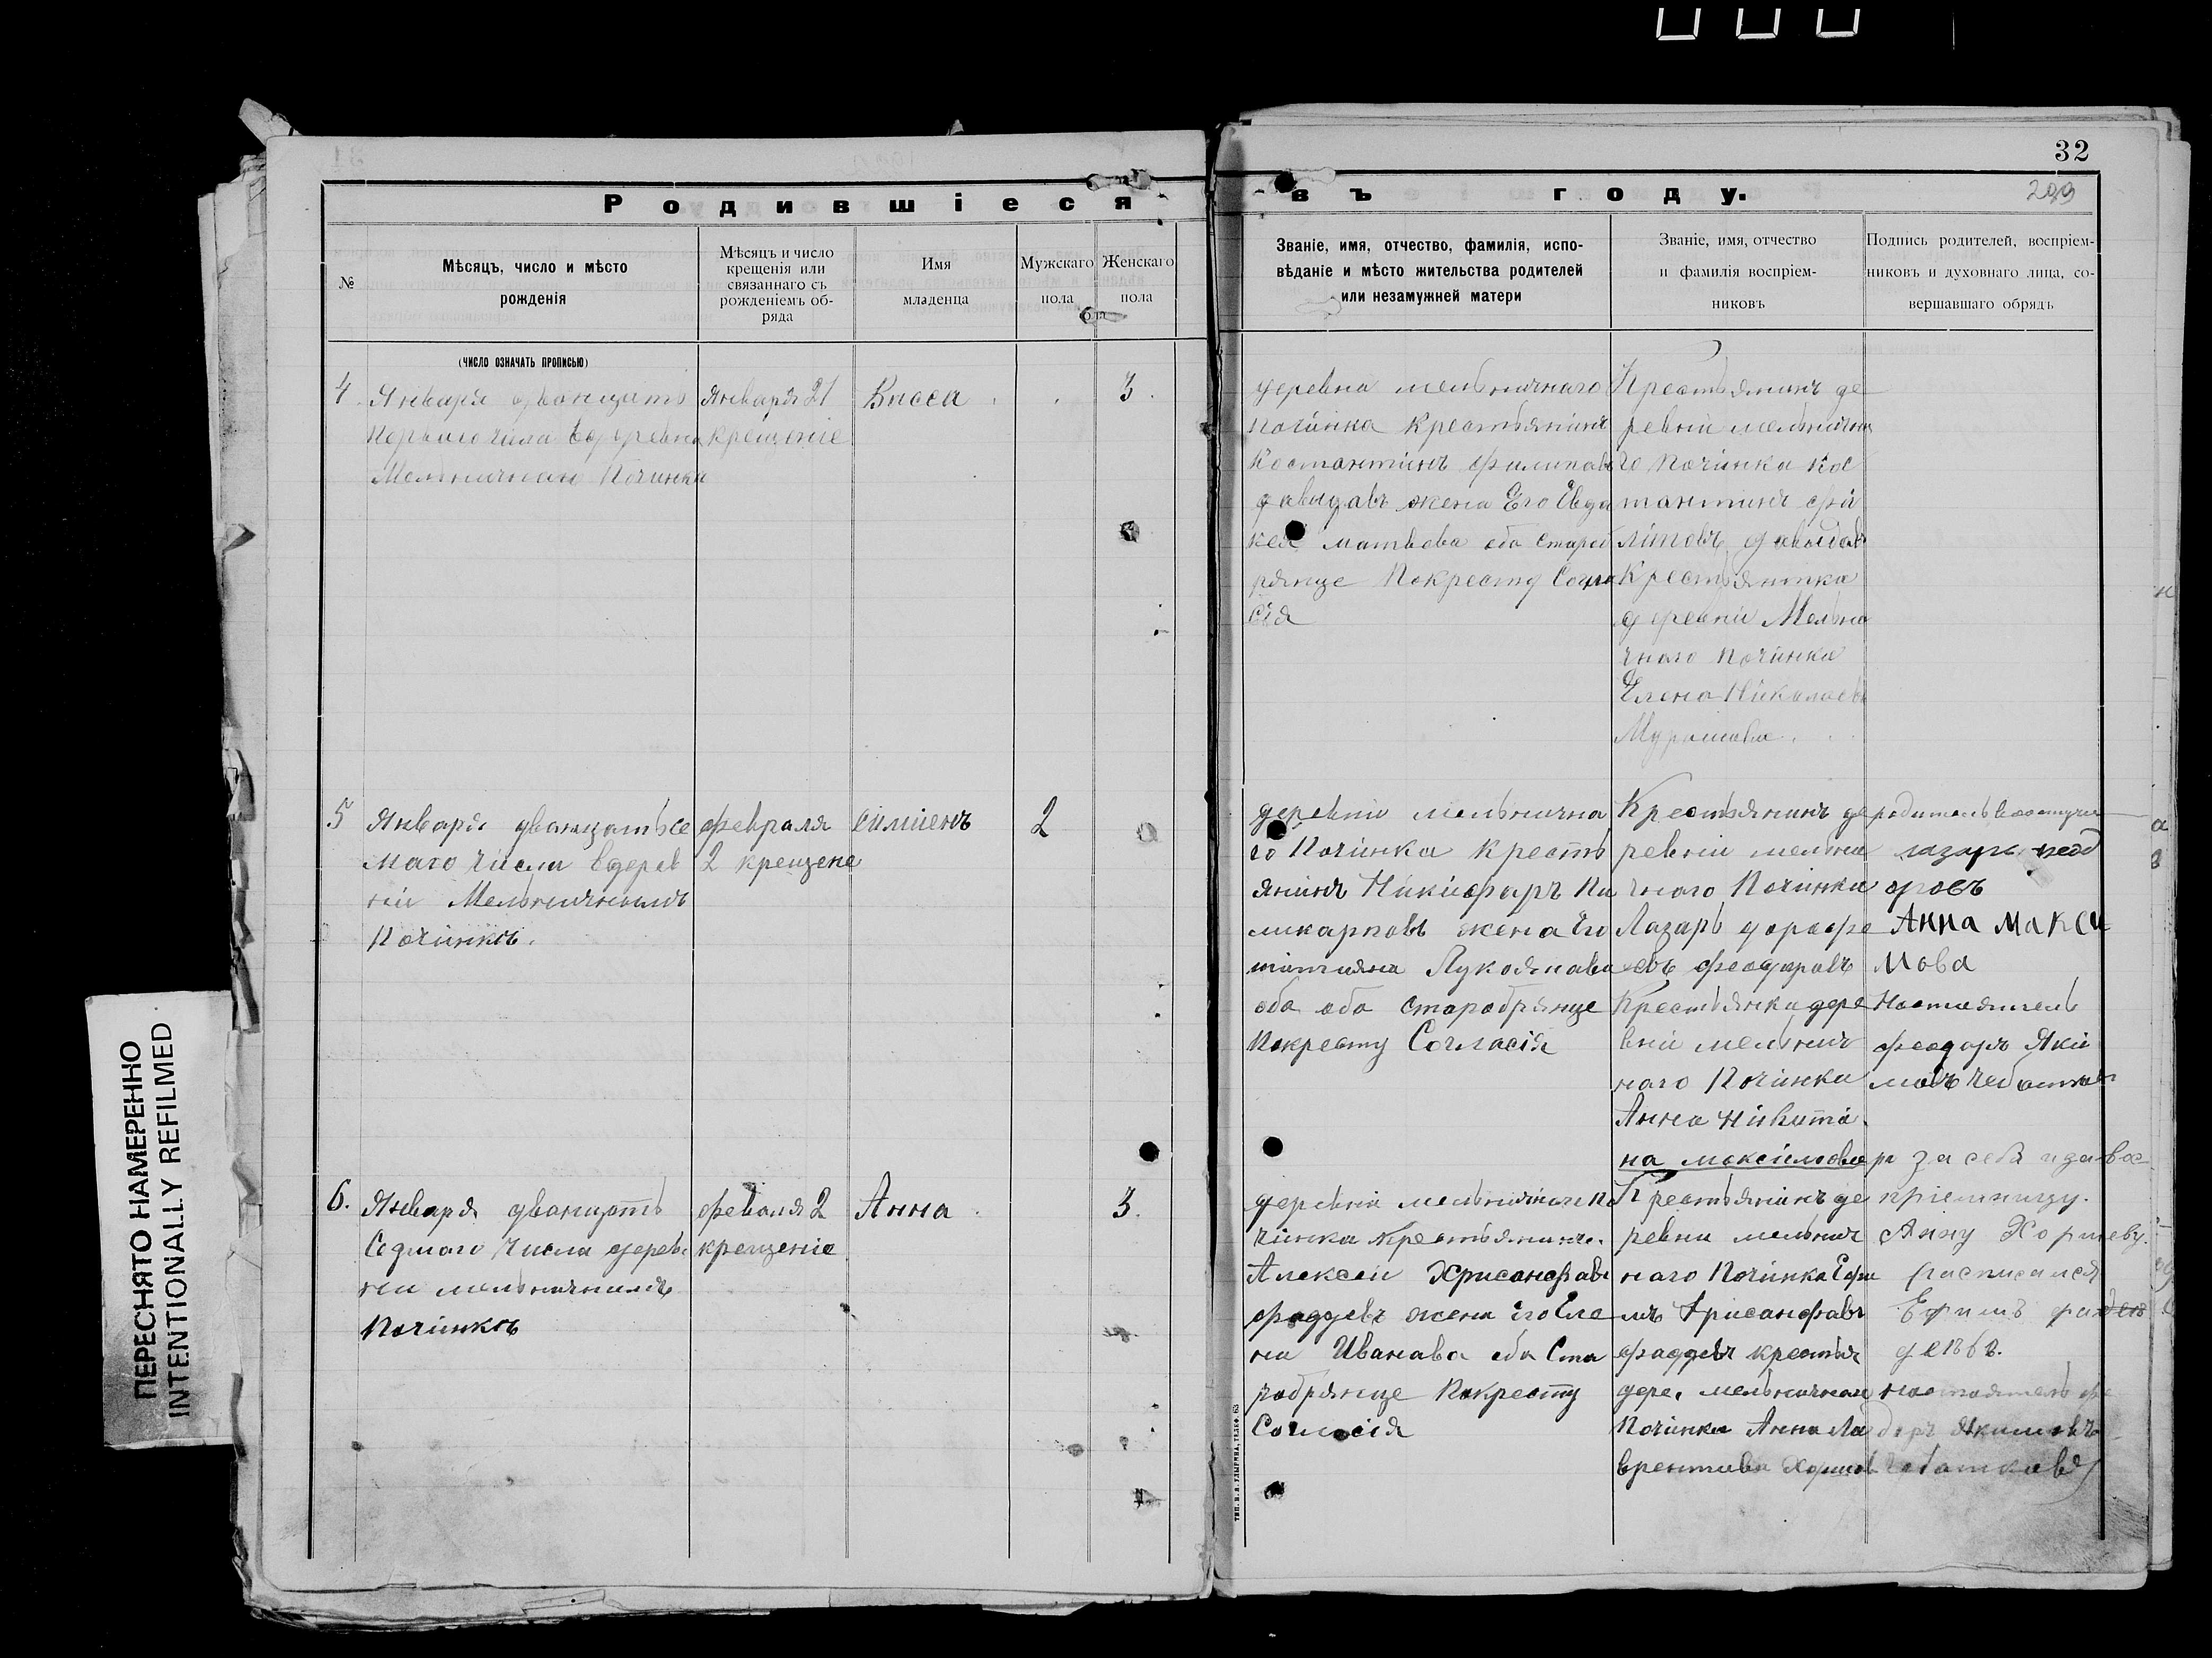 32
299
Родившіеся
въ году.
№
Мѣсяцъ, число и мѣсто
рожденія
Мѣсяцъ и число
крещенія или
связаннаго съ
рожденіемъ об-
ряда
Имя
младенца
Мужскаго
пола
Женскаго
пола
Званіе, имя, отчество, фамилія, испо-
вѣданіе и мѣсто жительства родителей
или незамужней матери
Званіе, имя, отчество
и фамилія воспріем-
никовъ
Подпись родителей, воспріем-
никовъ и духовнаго лица, со-
вершавшаго обрядъ
(число означать прописью)
4.
Января двонцать
первого числа
Мельничнаго Починка
Января 21
крещеніе
Васса
3.
деревна мельничнаго
починка крестьянинъ
Костантинъ филипавъ
давыдавъ жена Его Евда
кея матвева оба Староб
рянце Покресту Согла
сія
Крестьянинъ де
ревни мельнична
го Починка Кос
тантинъ фи
липовъ давыдавъ
Крестьянтка
деревни Мельни
чнаго Починка
Елена Николаевъ
5
Января дванцать се
маго числа вдерев
ніи Мельничнымъ
Починкъ.
февраля
2 крещене
симиенъ
2
деревни мельнична
го Починка кресть
янинъ Никифаръ По
ликарповъ жена Его
татияна Лукоянава
оба оба старобрянце
Покресту Согласія
Крестьянинъ де
ревніи мельни
чнаго Починка
Лазарь дорофе
евъ феодаровъ
Крестьянка дере
вни мельнич
наго Починка
Анна Никити
на максимова
лазарь феод
оровъ
Анна Макси
мова
Настоятель
феодоръ Яки
мовъ
6.
Января дванцать
Седмаго числа дерев
ни мельничнымъ
Починкъ
феваля 2
крещеніе
Анна
3.
деревни мельничнаго По
чинка Крестьянинъ
Алексеи Хрисанфавъ
фаддевъ жена Его Еле
на Иванава оба Ста
робрянце Покресту
Согласія
Крестьянинъ де
ревни мельнич
наго Починка Ефи
мъ Хрисанфавъ
фаддевъ крестья
дере. мельничнаго
Починка Анна Ла
врентива Хорше
за себя и за вос
пріемницу.
Анну Хоршеву.
росписался
Ефимъ фад
девъ.
настоятель фе
доръ Якимовъ
Чебатковъ
ПЕРЕСНЯТО НАМЕРЕННО
INTENTIONALLY REFILMED